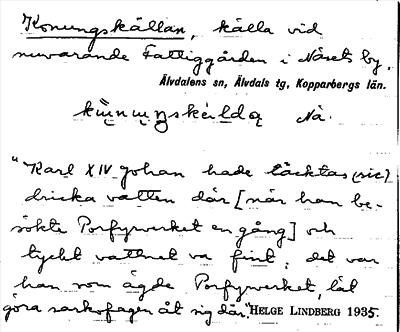 Konungskällan, källa vid
nuvarande Fattiggården i Näsets by.
Älvdalens sn, Älvdals tg, Kopparbergs län.
Nä.
"Karl XIV Johan hade täcktas (sic)
dricka vatten där [när han be-
sökte Porfyrverket en gång] och
tyckt vattnet va fint, det var
han som ägde Porfyrverket, lät
göra sarkofagen åt sig där." HELGE LINDBERG 1935.